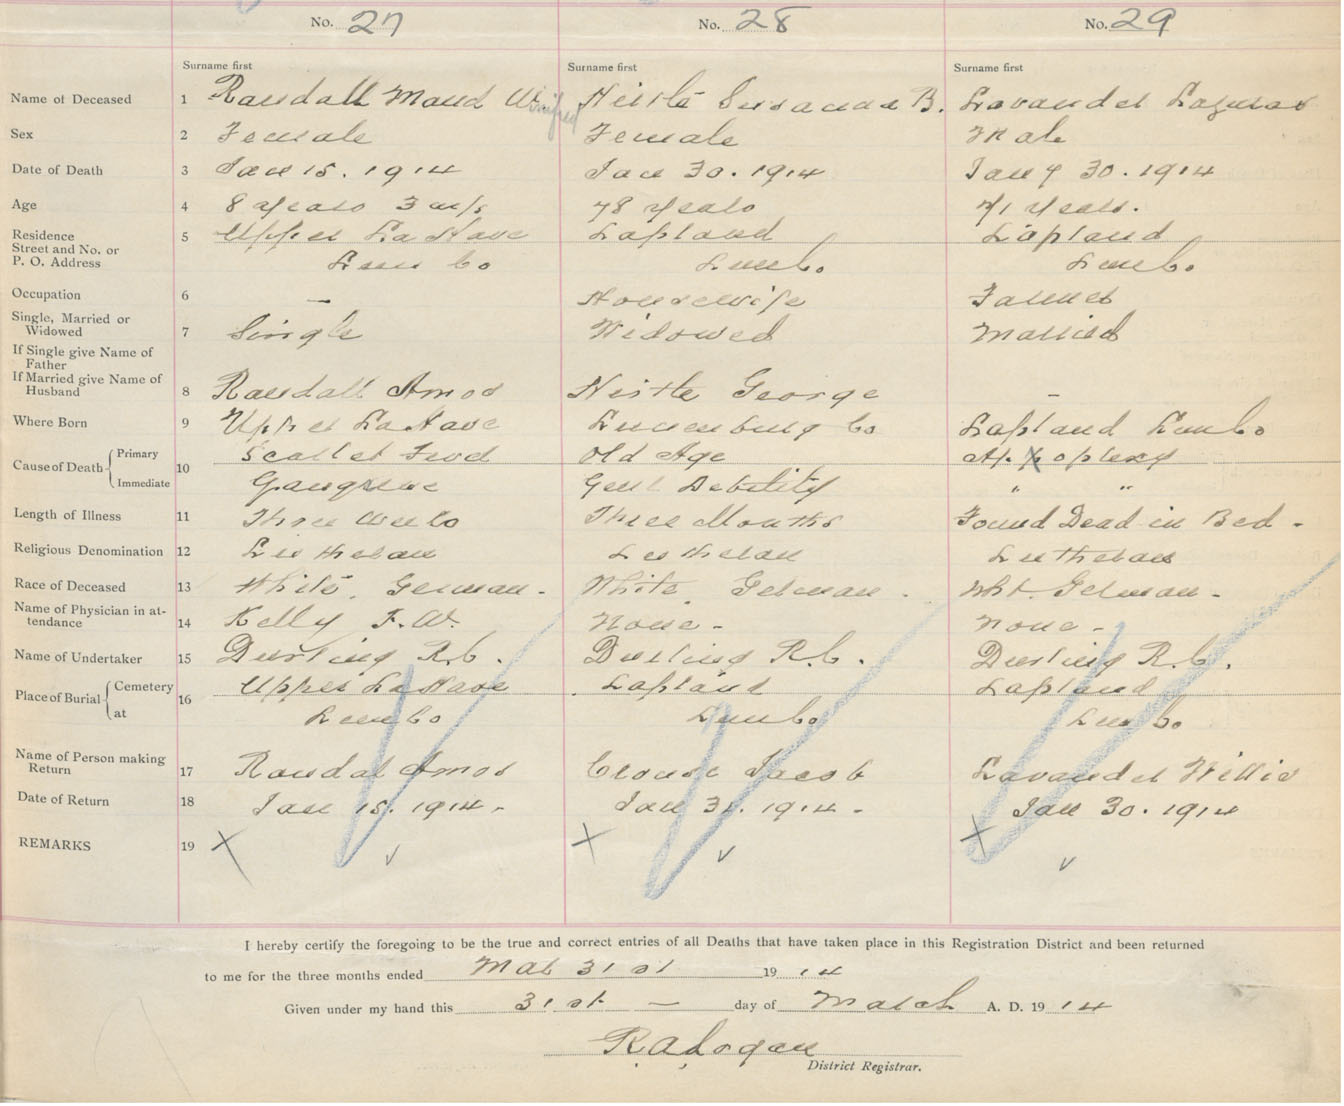 No. 27 No. 28 No. 29
Surname first Surname first Surname first
Name of Deceased 1 Randall Maud Winifred Hirtle Susanna B. Lavander Lazarus
Sex 2 Female Female Male
Date of Death 3 Jan 15. 1914 Jan 30. 1914 Jany 30. 1914
Age 4 8 years 3 m/s 78 years 71 years.
Residence 5 Upper LaHave Lapland Lapland
Street and No. or
P. O. Address Lun Co Lun Co. Lun Co.
Occupation 6 — Housewife Farmer
Single, Married or
Widowed 7 Single Widowed Married
If Single give Name of
Father
If Married give Name of
Husband 8 Randall Amos Hirtle George -
Where Born 9 Upper LaHave Lunenburg Co Lapland Lun Co
Cause of Death Primary 10 Scarlet Fever Old Age Appoplexy
Immediate Gangrene Genl Debility " "
Length of Illness 11 Three Weeks Three Months Found Dead in Bed -
Religious Denomination 12 Lutheran Lutheran Lutheran
Race of Deceased 13 White. German - White. German - Wht. German -
Name of Physician in at-
tendance 14 Kelly F. W. None - None -
Name of Undertaker 15 Durling R.C. Durling R.C. Durling R.C.
Place of Burial Cemetery 16 Upper LaHave Lapland Lapland
at Lun Co Lun Co Lun Co
Name of Person making
Return 17 Randal Amos Crouse Jacob Lavander Willis
Date of Return 18 Jan 15. 1914 - Jan 31. 1914 - Jan 30. 1914
REMARKS 19 X X X
I hereby certify the foregoing to be the true and correct entries of all Deaths that have taken place in this Registration District and been returned
to me for the three months ended Mar 31st 1914
Given under my hand this 31st — day of March A. D. 1914
R.A. Logan
District Registrar.